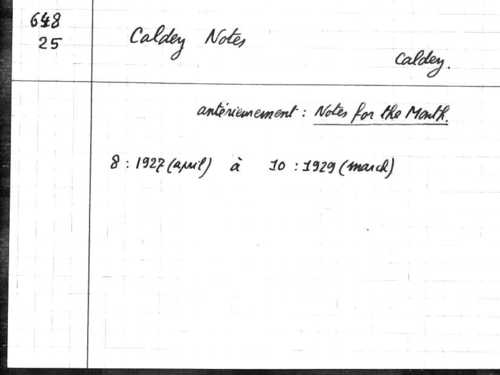 648
25
Caldey Notes
Caldey.
antérieurement : Notes for the Month.
8 : 1927 (april) à 10 : 1929 (march)